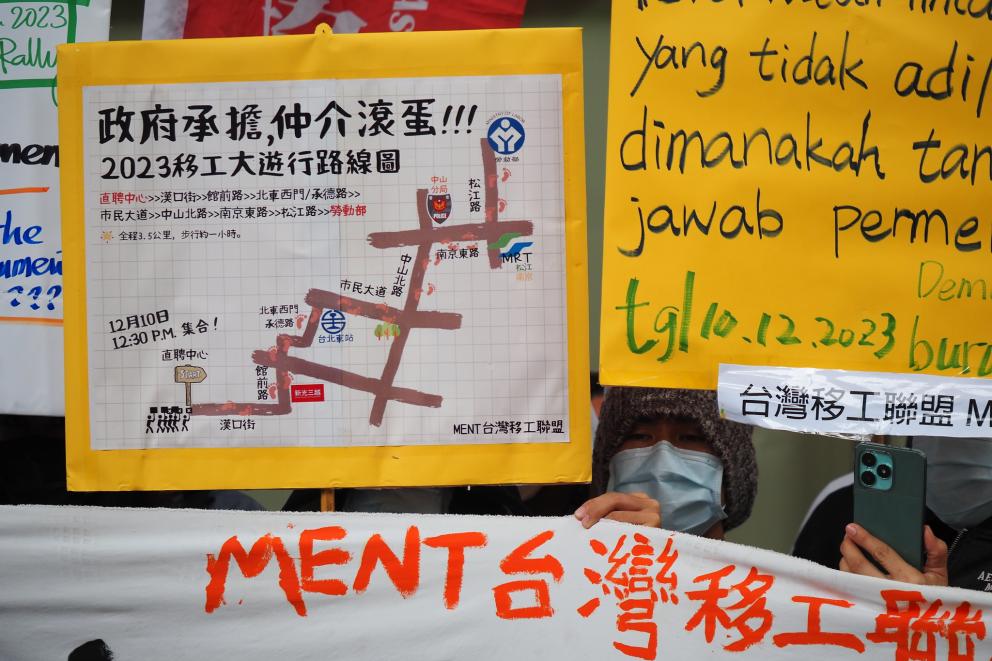 2023
Rally
the
???
政府承擔,仲介滾蛋!!!
2023移工大遊行路線圖
直聘中心>>漢口街>>館前路>>北車西門/承德路>>
市民大道>>中山北路>>南京東路>>松江路>>勞動部
全程3.5公里，步行約一小時。
MINISTRY OF LABOR
勞動部
中山
分局
POLICE
松江路
南京東路
MRT
松江
南京
中山北路
市民大道
北車西門
承德路
台北車站
12月10日
12:30 P.M. 集合!
直聘中心
START
館前路
新光三越
漢口街
MENT台灣移工聯盟
yang tidak adil
dimanakah tan
jawab perme
Dem
tgl 10.12.2023 buru
台灣移工聯盟 M
MENT台灣移工聯